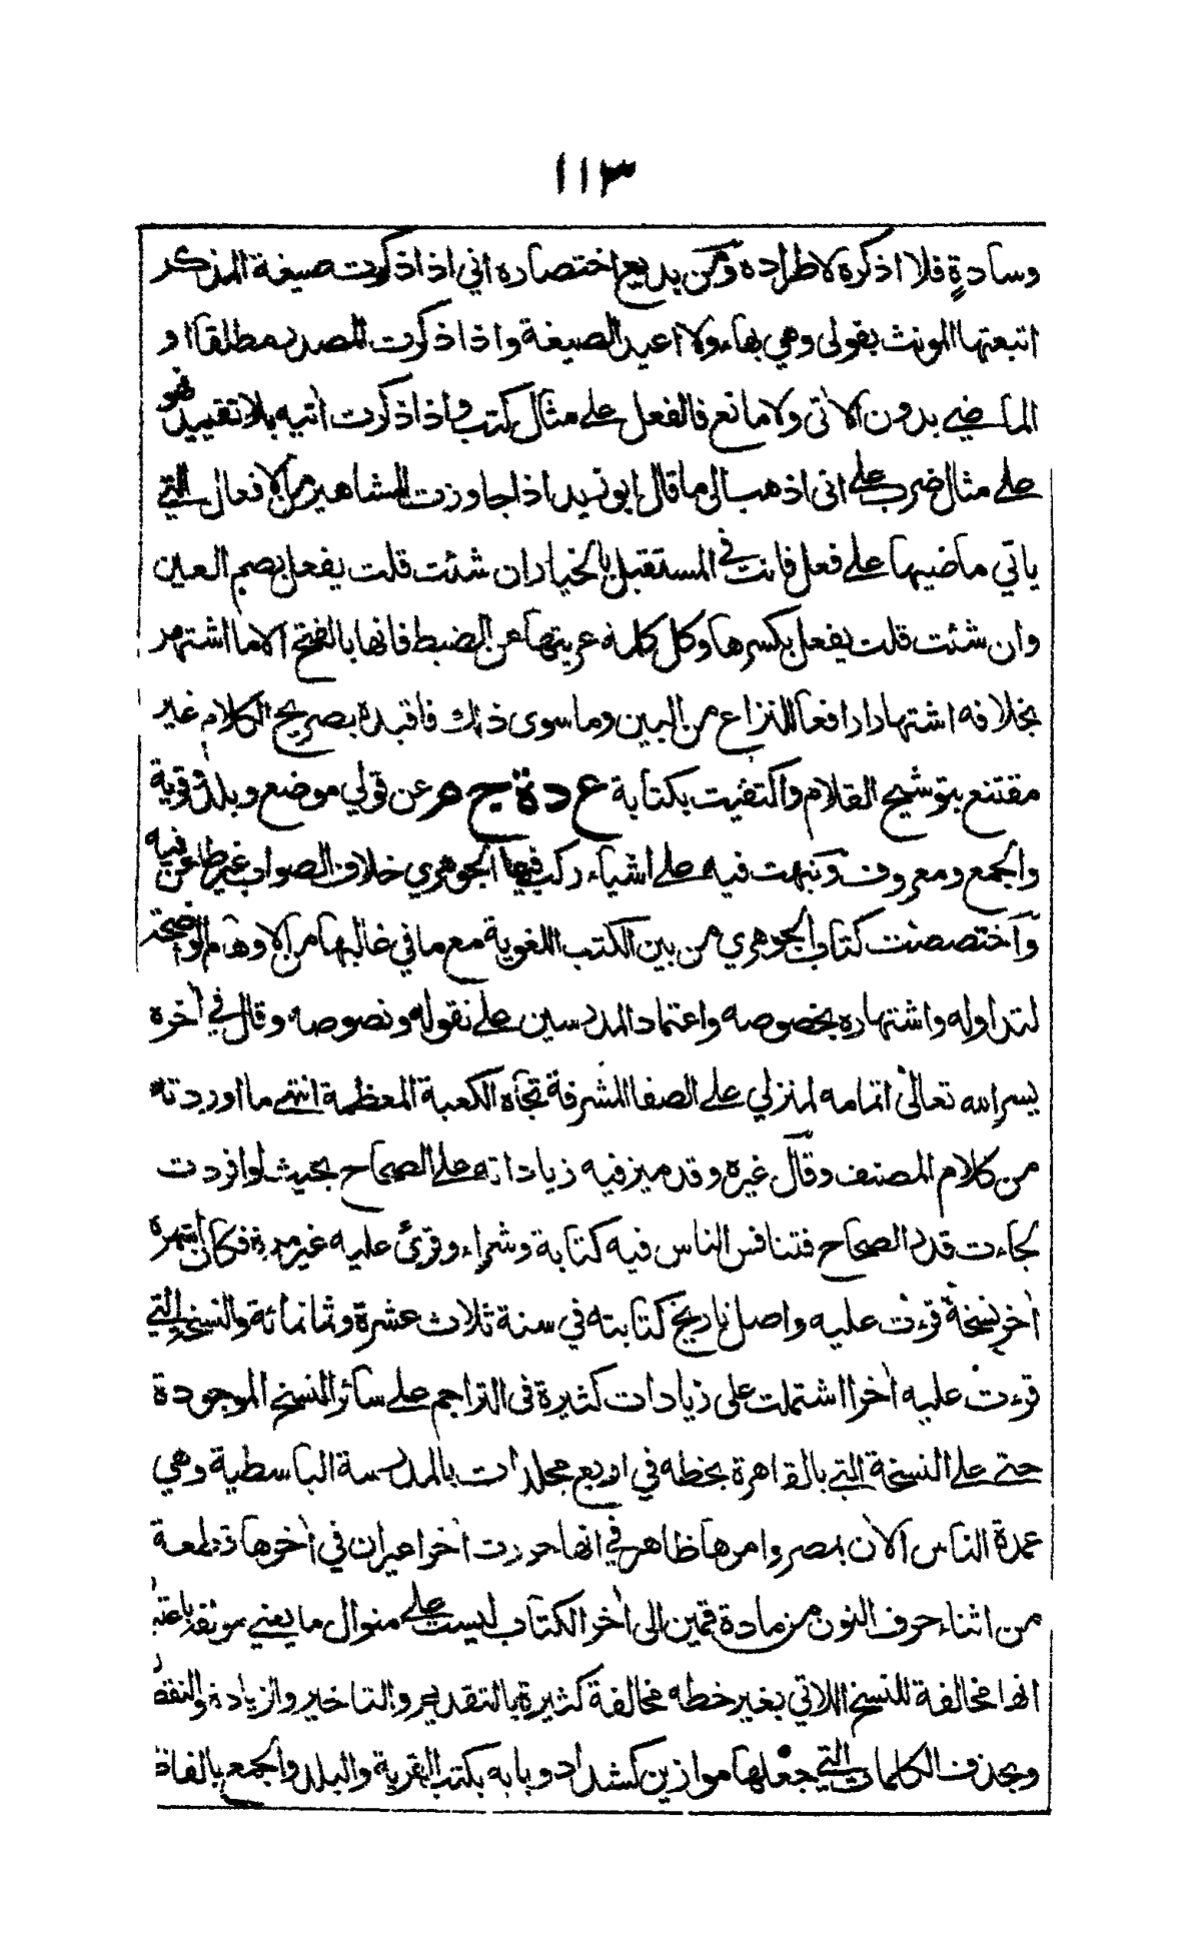 ١١٣
وسادةٍ فلا اذكره لاطراده ومن بديع اختصاره اني اذا ذكرت صيغة المذكر
اتبعتها المونث بقولى وهي بهاء ولا اعيد الصيغة واذا ذكرت المصدر مطلقا او
الماضي بدون الاتى ولا مانع فالفعل على مثال كتب واذا ذكرت اتيه بلا تقييد فهو
على مثال ضرب على انى اذهب الى ما قال ابو زيد اذا جاوزت المشاهير من الافعال التي
ياتي ماضيها على فعل فانت في المستقبل بالخيار ان شئت قلت يفعل بضم العين
وان شئت قلت يفعل بكسرها وكل كلمة عريتها عن الضبط فانها بالفتح الا ما اشتهر
بخلافه اشتهارا رافعا للنزاع من البين وما سوى ذلك فاقيده بصريح الكلام غير
مقتنع بتوشيح القلام واكتفيت بكتابة ع د ة ج م عن قولي موضع وبلد وقرية
والجمع ومعروف ونبهت فيه على اشياء ركب فيها الجوهري خلاف الصواب غير طاعن فيه
واختصصت كتاب الجوهري من بين الكتب اللغوية مع ما في غالبها من الاوهام الواضحة
لتداوله واشتهاره بخصوصه واعتماد المدرسين على نقوله ونصوصه وقال في اخره
يسر الله تعالى اتمامه لمنزلي على الصفا المشرفة تجاه الكعبة المعظمة انتهى ما اوردته
من كلام المصنف وقال غيره وقد ميز فيه زياداته على الصحاح بحيث لو افردت
لجاءت قدر الصحاح فتنافس الناس فيه كتابة وشراء وقرئ عليه غير مرة فكان اشهره
اخر نسخة قرءت عليه واصل تاريخ كتابته في سنة ثلاث عشرة وثمانمائة والنسخ التي
قرءت عليه اخرا اشتملت على زيادات كثيرة في التراجم على سائر النسخ الموجودة
حتى على النسخة التي بالقاهرة بخطه في اربع مجلدات بالمدرسة الباسطية وهي
عمدة الناس الان بمصر وامرها ظاهر في انها حررت اخرا غير ان في اخرها قطعة
من اثناء حرف النون من مادة قمين الى اخر الكتاب ليست على منوال ما يعني موثقه باعتبا
انها مخالفة للنسخ اللاتي بغير خطه مخالفة كثيرة بالتقديم والتاخير والزيادة والنقص
وبحذف الكلمات التي جعلها موازين كشداد وبابه بكتب القرية والبلد والجمع بالفاظ